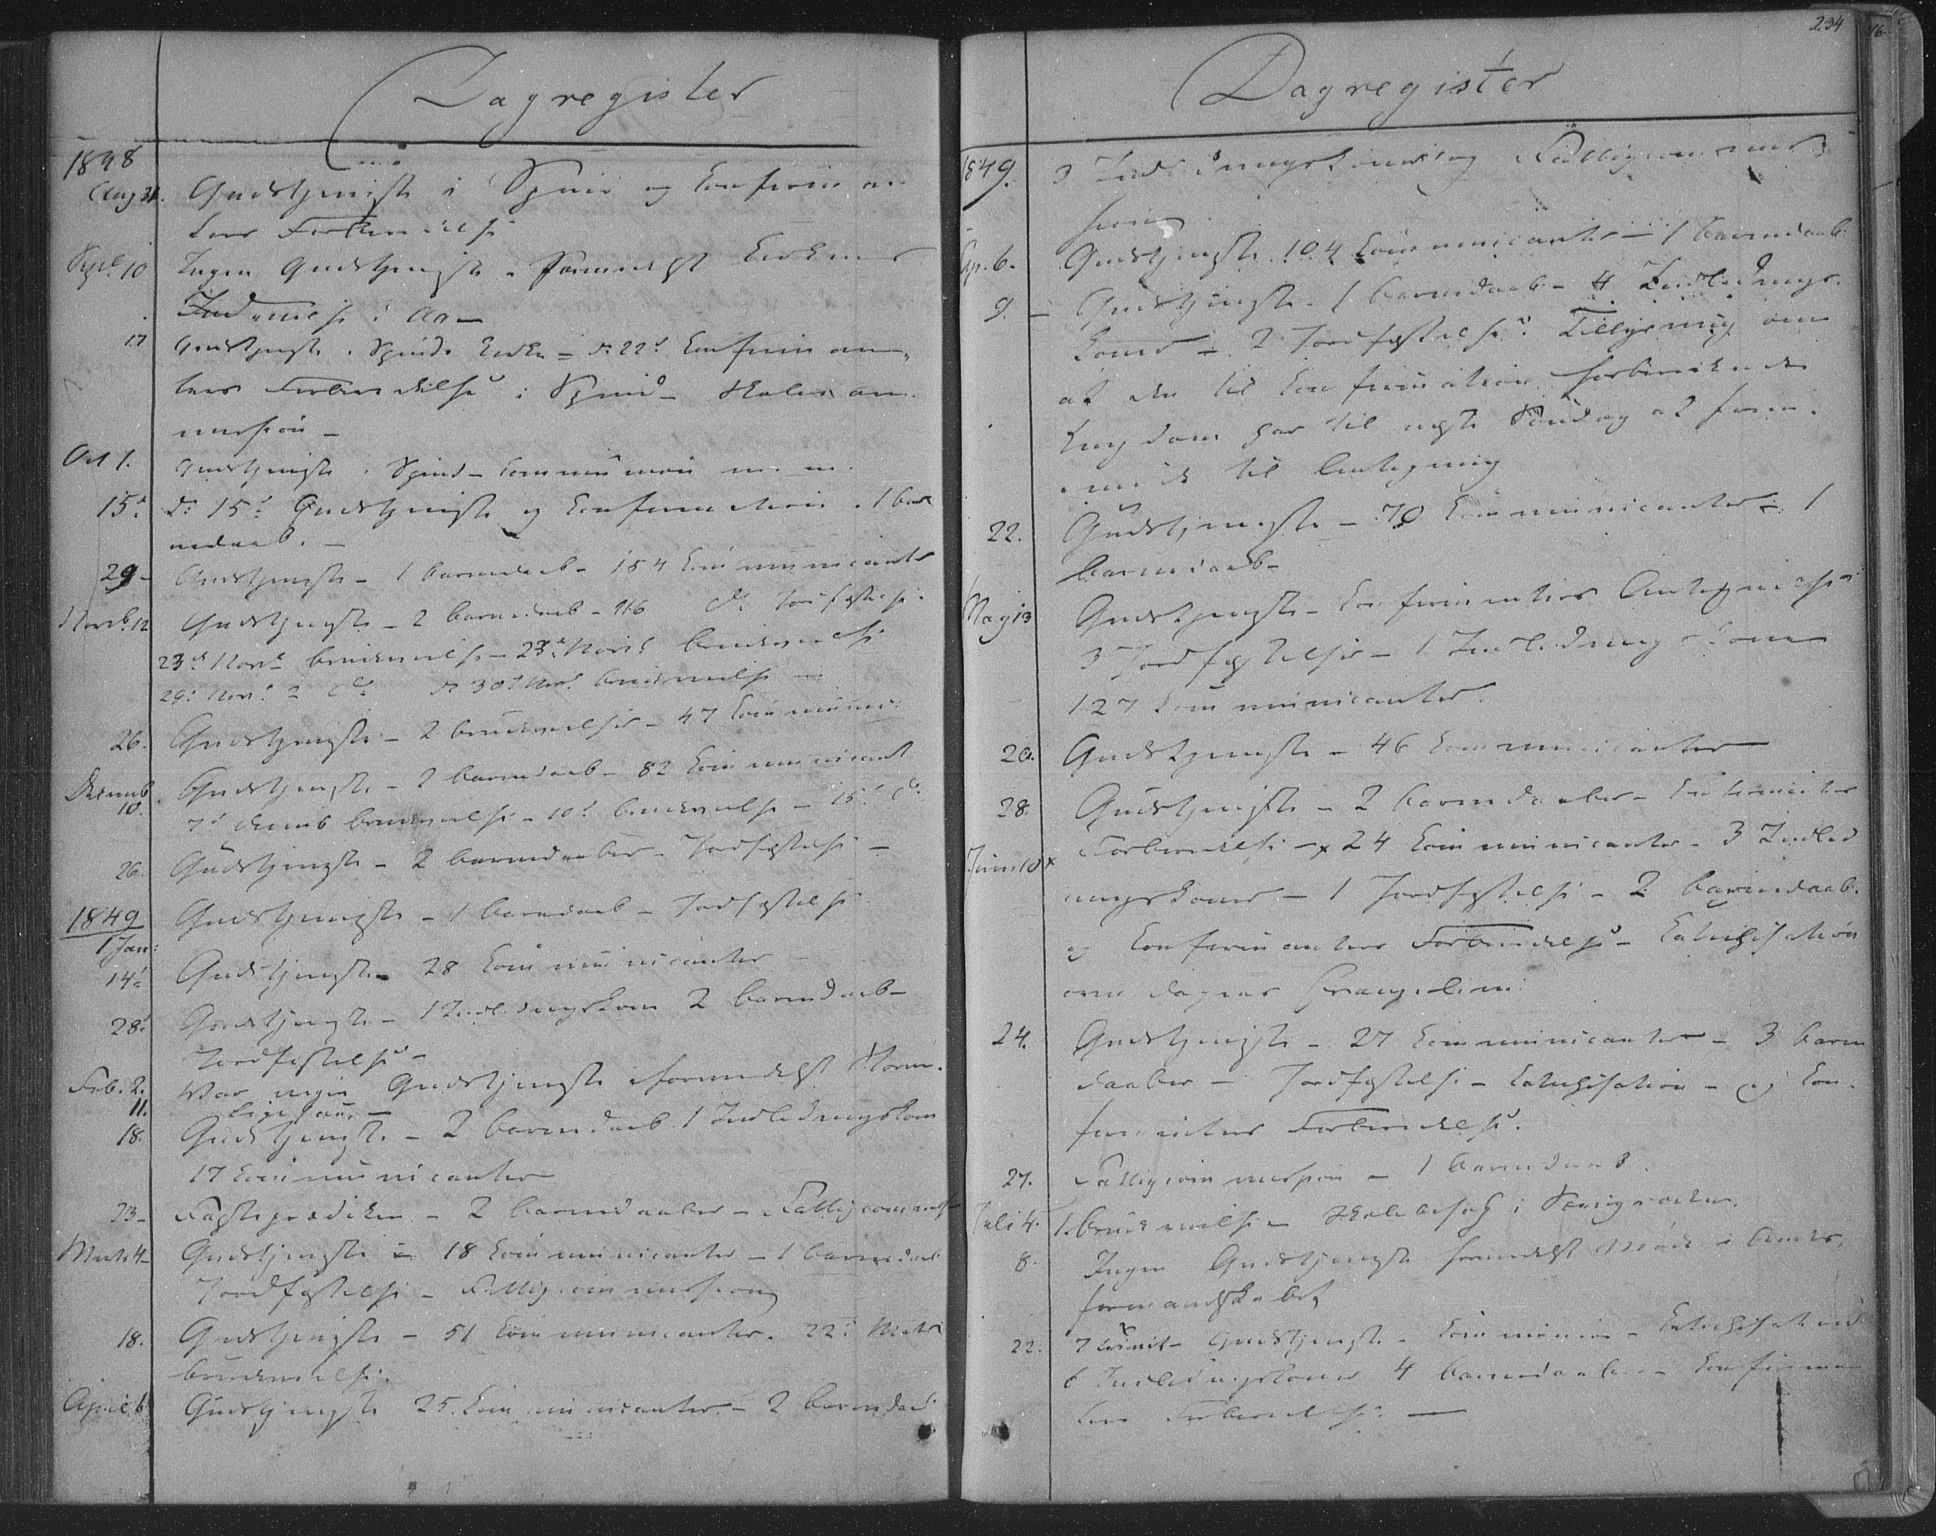 Dagregister
1848
Aug 31. Gudstjeneste i Spind og Confirman
ters Forberedelse
Sept 10 Ingen Gudstjeneste formedelst Kirkens
i Aa—
17 Gudstjeneste i Spinds Kirke — d. 22d Confirman-
ters Forberedelse i Spind — Skolecom-
mission —
Oct 1. Gudstjeneste i Spind — Communion m. m.
15d d. 15d Gudstjeneste og Confirmation. 1 Bar
nedaab. —
29 — Gudstjeneste — 1 Barnedaab — 154 Communicanter
Novb. 12 Gudstjeneste — 2 Barnedaab — 116 do Jordfæstelse.
23d Novb Brudevielse — 23d Novb Brudevielse
29d Novb 2 do d. 30d Novb Brudevielse —
26. Gudstjeneste — 2 Brudevielser — 47 Communic:
Decemb 10. Gudstjeneste — 2 Barnedaab — 82 Communicant
7d Decemb Brudevielse — 10d Brudevielse — 15d do
26. Gudstjeneste — 2 Barnedaaber — Jordfæstelse —
1849
1 Jan: Gudstjeneste — 1 Barnedaab — Jordfæstelse
14d Gudstjeneste — 28 Communicanter —
28d Gudstjeneste — 1 Indledningskone 2 Barnedaab —
Jordfæstelse —
Feb. 2. Var ingen Gudstjeneste formedelst Storm.
11. Ligesaa, —
18. Gudstjeneste — 2 Barnedaab. 1 Indledningskone
17 Communicanter
23 — Fasteprædiken — 2 Barnedaaber — Fattigcommiss
Marts 4 — Gudstjeneste — 18 Communicanter — 1 Barnedaab
Jordfæstelse — Fattigcommission
18. Gudstjeneste — 51 Communicanter. 22d Marts
Brudevielse.
April 6 Gudstjeneste 25 Communicanter — 2 Barnedaab
234
Dagregister
1849. 3 Indledningskoner og Fattigcommis
sion
Ap. 6. Gudstjeneste 104 Communicanter — 1 Barnedaab
9. — Gudstjeneste. 1 Barnedaab — 4 Indlednings-
koner — 2 Jordfæstelser. Tillysning om
at den til Confirmation forberedende
Ungdom har til næste Søndag at frem-
møde til Antegning
22. Gudstjeneste — 70 Communicanter — 1
Barnedaab —
May 13 Gudstjeneste — Confirmanters Antegnelse
3 Jordfæstelser — 1 Indledningskone
127 Communicanter.
20. Gudstjeneste — 46 Communicanter
28. Gudstjeneste — 2 Barnedaaber — Confirmanters
Juni 10 x Forberedelse — x 24 Communicanter — 3 Indled
ningskoner — 1 Jordfæstelse — 2 Barnedaab.
og Confirmanters Forberedelse — Catechisation
over Dagens Evangelium.
24. Gudstjeneste — 27 Communicanter — 3 Barne
daaber — Jordfæstelse — Catechisation — og Con-
firmanters Forberedelse.
27. Fattigcommission — 1 Barnedaab.
Juli 4. 1 Brudevielse — Skolebesøg i
8. Ingen Gudstjeneste formedelst Møde i Amts-
formandskabet
22. 7 Trinit — Gudstjeneste. Communion — Catechisation
6 Indledningskoner 4 Barnedaaber — Confirman
ters Forberedelse. —